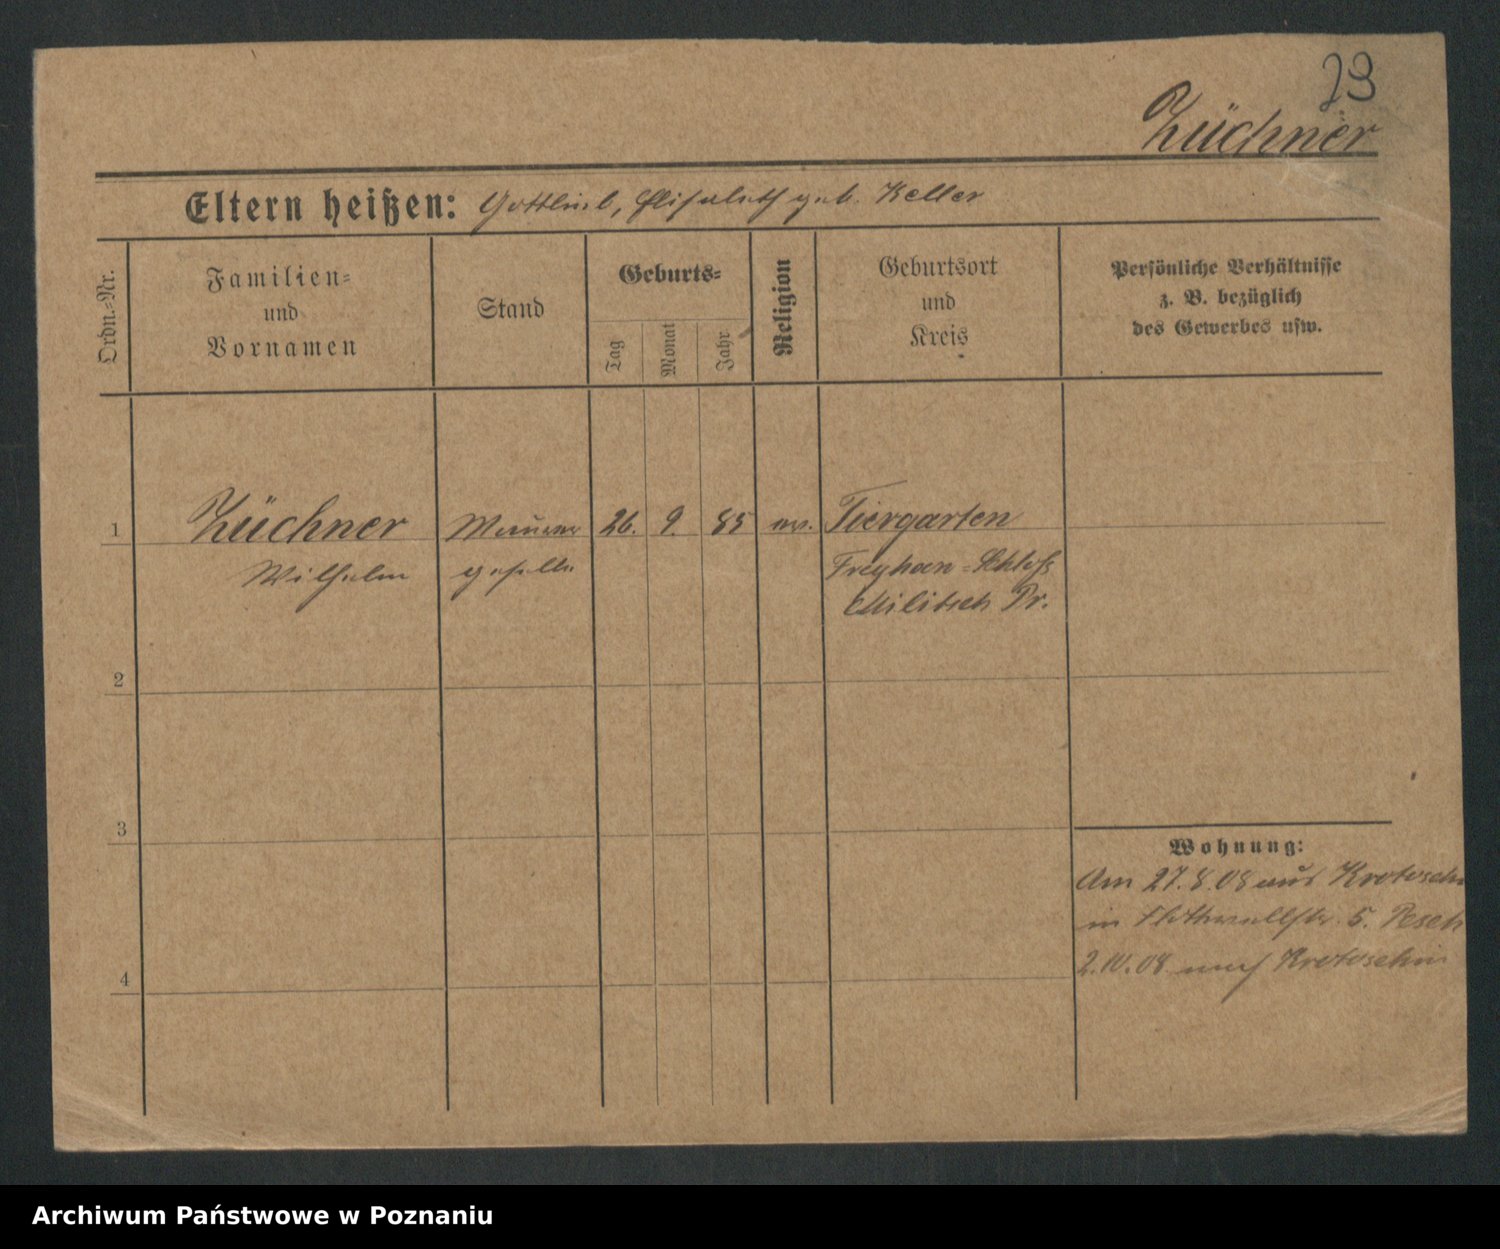 23
Züchner
Eltern heißen: Gottlieb, Elisabeth geb. Keller
Ordn.-Nr.
Familien-
und
Vornamen
Stand
Geburts-
Tag
Monat
Jahr
Religion
Geburtsort
und
Kreis
Persönliche Verhältnisse
z. B. bezüglich
des Gewerbes usw.
1 Züchner Maurer 26. 9. 85 ev. Tiergarten
Wilhelm geselle Freyhan-Schloß
Militsch Pr.
2
3
Wohnung:
Am 27.8.08 aus Krotoschin
in Flottwellstr. 5.
2.10.08 nach Krotoschin
4
Archiwum Państwowe w Poznaniu